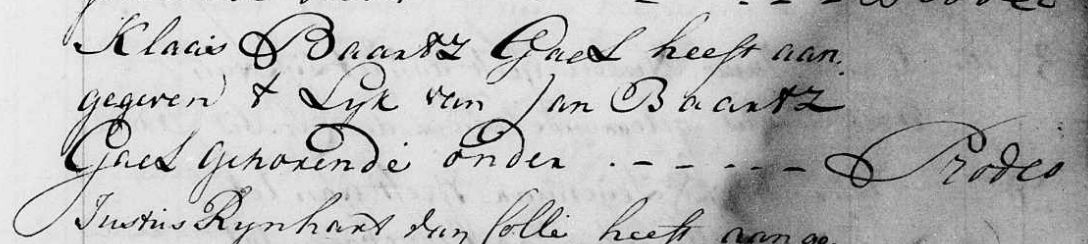 Klaas Baartz Gael heeft aan.
gegeven t Lyk van Jan Baartz
Gael gehorende onder . - - - - - Prodeo
Justus Rynhart van Colli heeft aange